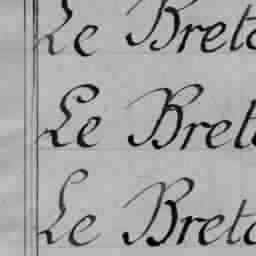 Le Bret
Le Bret
Le Bret